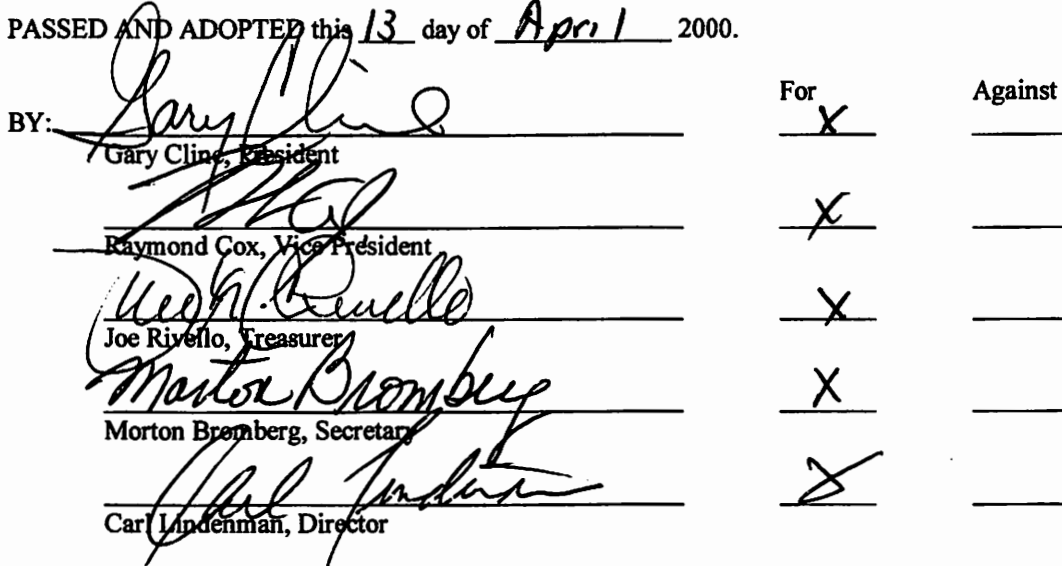 PASSED AND ADOPTED this 13 day of April 2000.
For Against
BY: Gary Cline X
Gary Cline, President
X
Raymond Cox, Vice President
Joe N. Rivello X
Joe Rivello, Treasurer
Morton Bromberg X
Morton Bromberg, Secretary
Carl Lindenman X
Carl Lindenman, Director